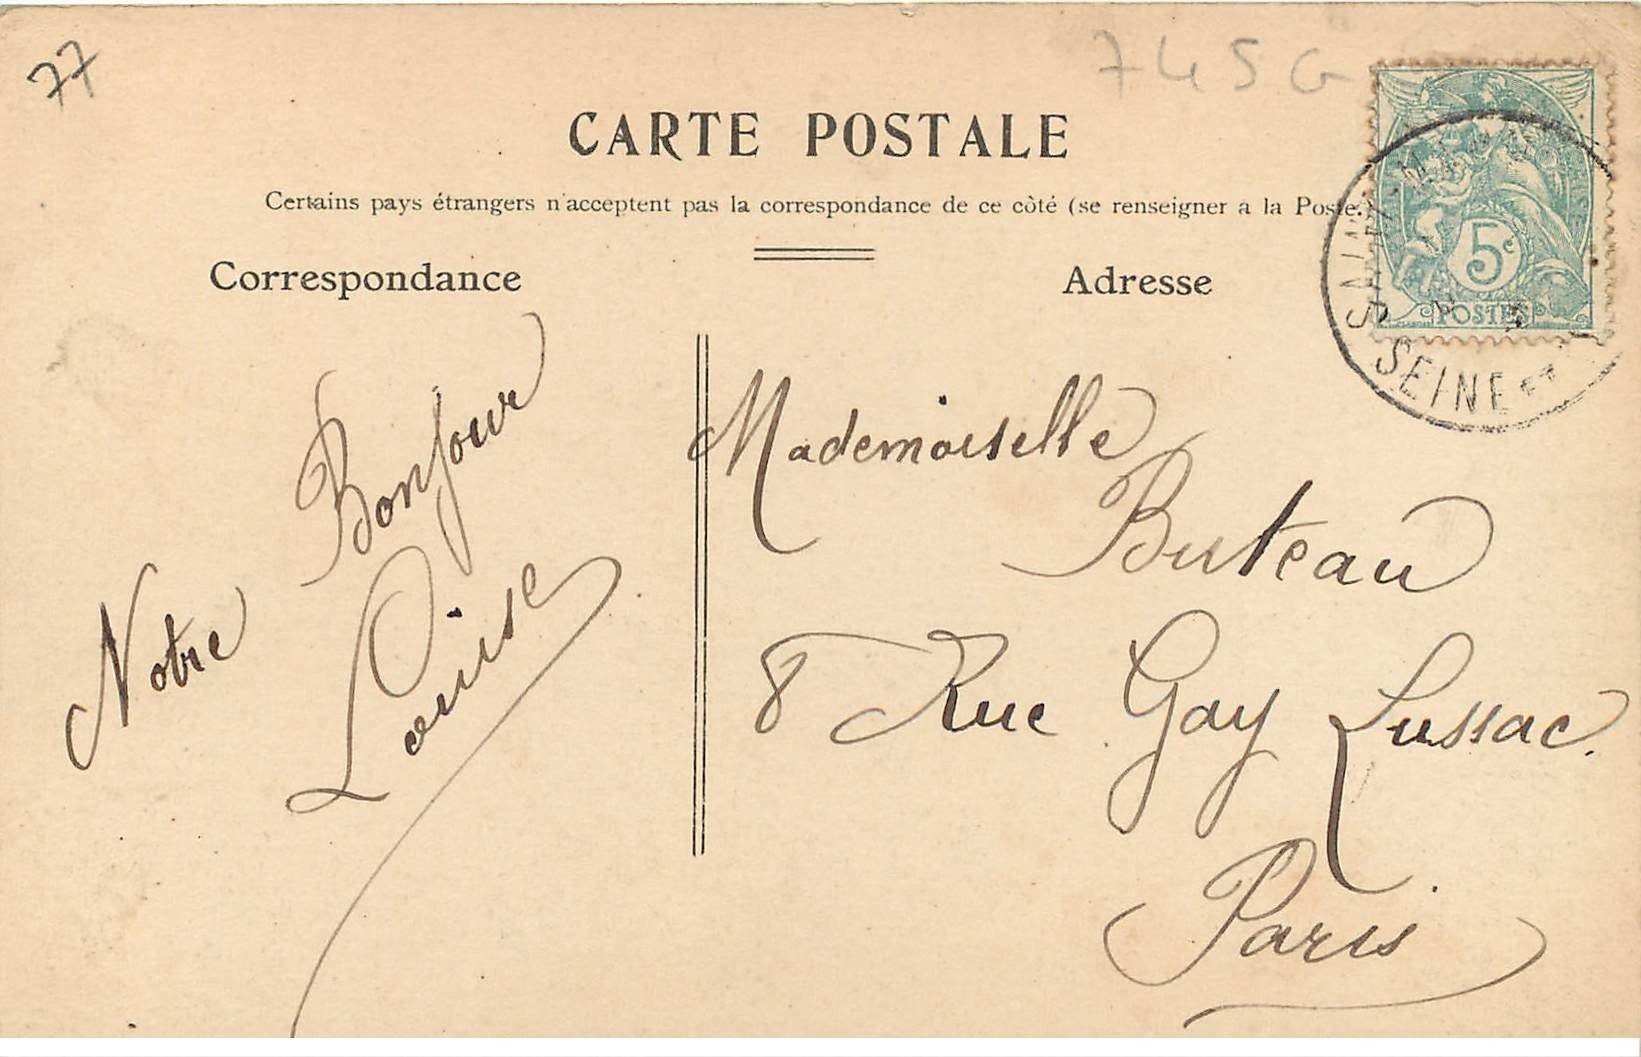 77
745G
CARTE POSTALE
Certains pays étrangers n'acceptent pas la correspondance de ce côté (se renseigner a la Poste.
Correspondance
Adresse
5c
POSTES
SEINE ET
Notre Bonjour
Louise
Mademoiselle
Buteau
8 Rue Gay Lussac.
Paris